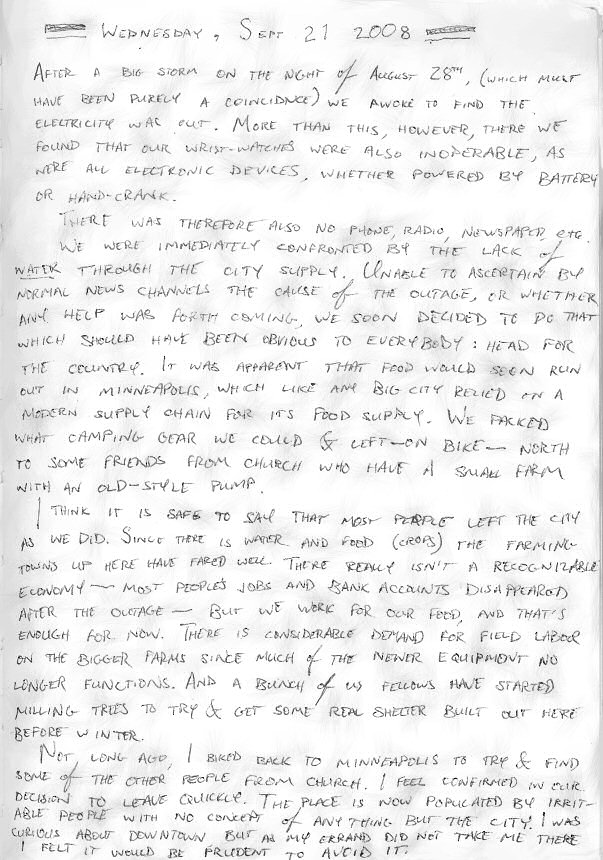 WEDNESDAY, SEPT 21 2008
AFTER A BIG STORM ON THE NIGHT of AUGUST 28TH, (WHICH MUST
HAVE BEEN PURELY A COINCIDNCE) WE AWOKE TO FIND THE
ELECTRICITY WAS OUT. MORE THAN THIS, HOWEVER, THERE WE
FOUND THAT OUR WRIST-WATCHES WERE ALSO INOPERABLE, AS
WERE ALL ELECTRONIC DEVICES, WHETHER POWERED BY BATTERY
OR HAND-CRANK.
THERE WAS THEREFORE ALSO NO PHONE, RADIO, NEWSPAPER, etc.
WE WERE IMMEDIATELY CONFRONTED BY THE LACK of
WATER THROUGH THE CITY SUPPLY. UNABLE TO ASCERTAIN BY
NORMAL NEWS CHANNELS THE CAUSE of THE OUTAGE, OR WHETHER
ANY HELP WAS FORTH COMING, WE SOON DECIDED TO DO THAT
WHICH SHOULD HAVE BEEN OBVIOUS TO EVERYBODY: HEAD FOR
THE COUNTRY. IT WAS APPARENT THAT FOOD WOULD SOON RUN
OUT IN MINNEAPOLIS, WHICH LIKE ANY BIG CITY RELIED ON A
MODERN SUPPLY CHAIN FOR ITS FOOD SUPPLY. WE PACKED
WHAT CAMPING GEAR WE COULD & LEFT—ON BIKE—NORTH
TO SOME FRIENDS FROM CHURCH WHO HAVE A SMALL FARM
WITH AN OLD-STYLE PUMP.
I THINK IT IS SAFE TO SAY THAT MOST PEOPLE LEFT THE CITY
AS WE DID. SINCE THERE IS WATER AND FOOD (CROPS) THE FARMING
TOWNS UP HERE HAVE FARED WELL. THERE REALLY ISN'T A RECOGNIZABLE
ECONOMY — MOST PEOPLE'S JOBS AND BANK ACCOUNTS DISAPPEARED
AFTER THE OUTAGE — BUT WE WORK FOR OUR FOOD, AND THAT'S
ENOUGH FOR NOW. THERE IS CONSIDERABLE DEMAND FOR FIELD LABOR
ON THE BIGGER FARMS SINCE MUCH of THE NEWER EQUIPMENT NO
LONGER FUNCTIONS. AND A BUNCH of US FELLOWS HAVE STARTED
MILLING TREES TO TRY & GET SOME REAL SHELTER BUILT OUT HERE
BEFORE WINTER.
NOT LONG AGO, I BIKED BACK TO MINNEAPOLIS TO TRY & FIND
SOME of THE OTHER PEOPLE FROM CHURCH. I FEEL CONFIRMED IN OUR
DECISION TO LEAVE QUICKLY. THE PLACE IS NOW POPULATED BY IRRIT-
ABLE PEOPLE WITH NO CONCEPT of ANY THING BUT THE CITY. I WAS
CURIOUS ABOUT DOWNTOWN BUT AS MY ERRAND DID NOT TAKE ME THERE
I FELT IT WOULD BE PRUDENT TO AVOID IT.